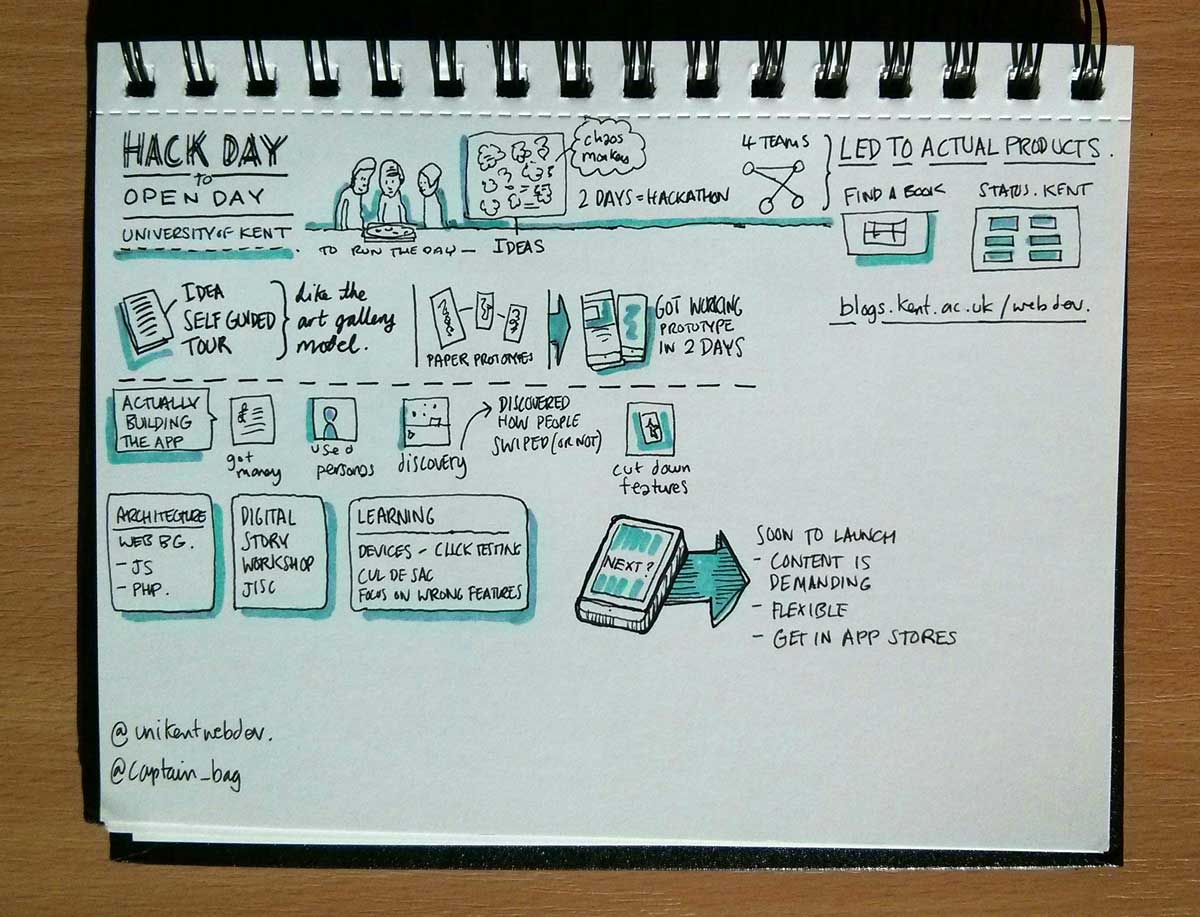 HACK DAY
TO
OPEN DAY
UNIVERSITY OF KENT
TO RUN THE DAY — IDEAS
chaos
monkey
2 DAYS = HACKATHON
4 TEAMS
LED TO ACTUAL PRODUCTS.
FIND A BOOK
STATUS.KENT
blogs.kent.ac.uk/webdev.
IDEA
SELF GUIDED
TOUR
Like the
art gallery
model.
PAPER PROTOTYPES
GOT WORKING
PROTOTYPE
IN 2 DAYS
ACTUALLY
BUILDING
THE APP
got
money
used
personas
discovery
DISCOVERED
HOW PEOPLE
SWIPED (OR NOT)
cut down
features
ARCHITECTURE
WEB BG.
- JS
- PHP.
DIGITAL
STORY
WORKSHOP
JISC
LEARNING
DEVICES - CLICK TESTING
CUL DE SAC
FOCUS ON WRONG FEATURES
NEXT?
SOON TO LAUNCH
- CONTENT IS
DEMANDING
- FLEXIBLE
- GET IN APP STORES
@unikentwebdev.
@captain_bag